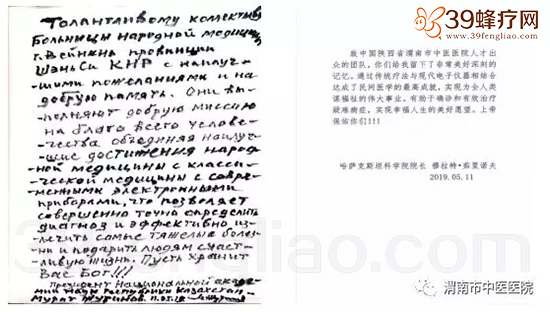 39蜂疗网
www.39fengliao.com
Талантливому колективу
Больницы народной медицины
г. Вейнана провинции
Шэньси КНР с наилуч-
-шими пожеланиями и на
добрую память. Они вы-
-полняют добрую миссию
на благо всего челове-
-чества объединяя наилуч-
-шие достижения народ-
-ной медицины с класси-
-ческой медицины с совре-
-менными электронными
приборами, что позволяет
совершенно точно определить
диагноз и эффективно из-
-лечить самые тяжелые болез-
-ни и подарить людям счаст-
-ливую жизнь. Пусть хранит
Вас Бог!!!
президент Национальной академии
наук Республики Казахстан
Мурат Журинов. 11.05.19
致中国陕西省渭南市中医医院人才出
众的团队,你们给我留下了非常美好深刻的
记忆。通过传统疗法与现代电子仪器相结合
达成了民间医学的最高成就,实现为全人类
谋福祉的伟大事业。有助于确诊和有效治疗
疑难病症,实现幸福人生的美好愿望。上帝
保佑你们!!!
哈萨克斯坦科学院院长 穆拉特·茹里诺夫
2019.05.11
渭南市中医医院